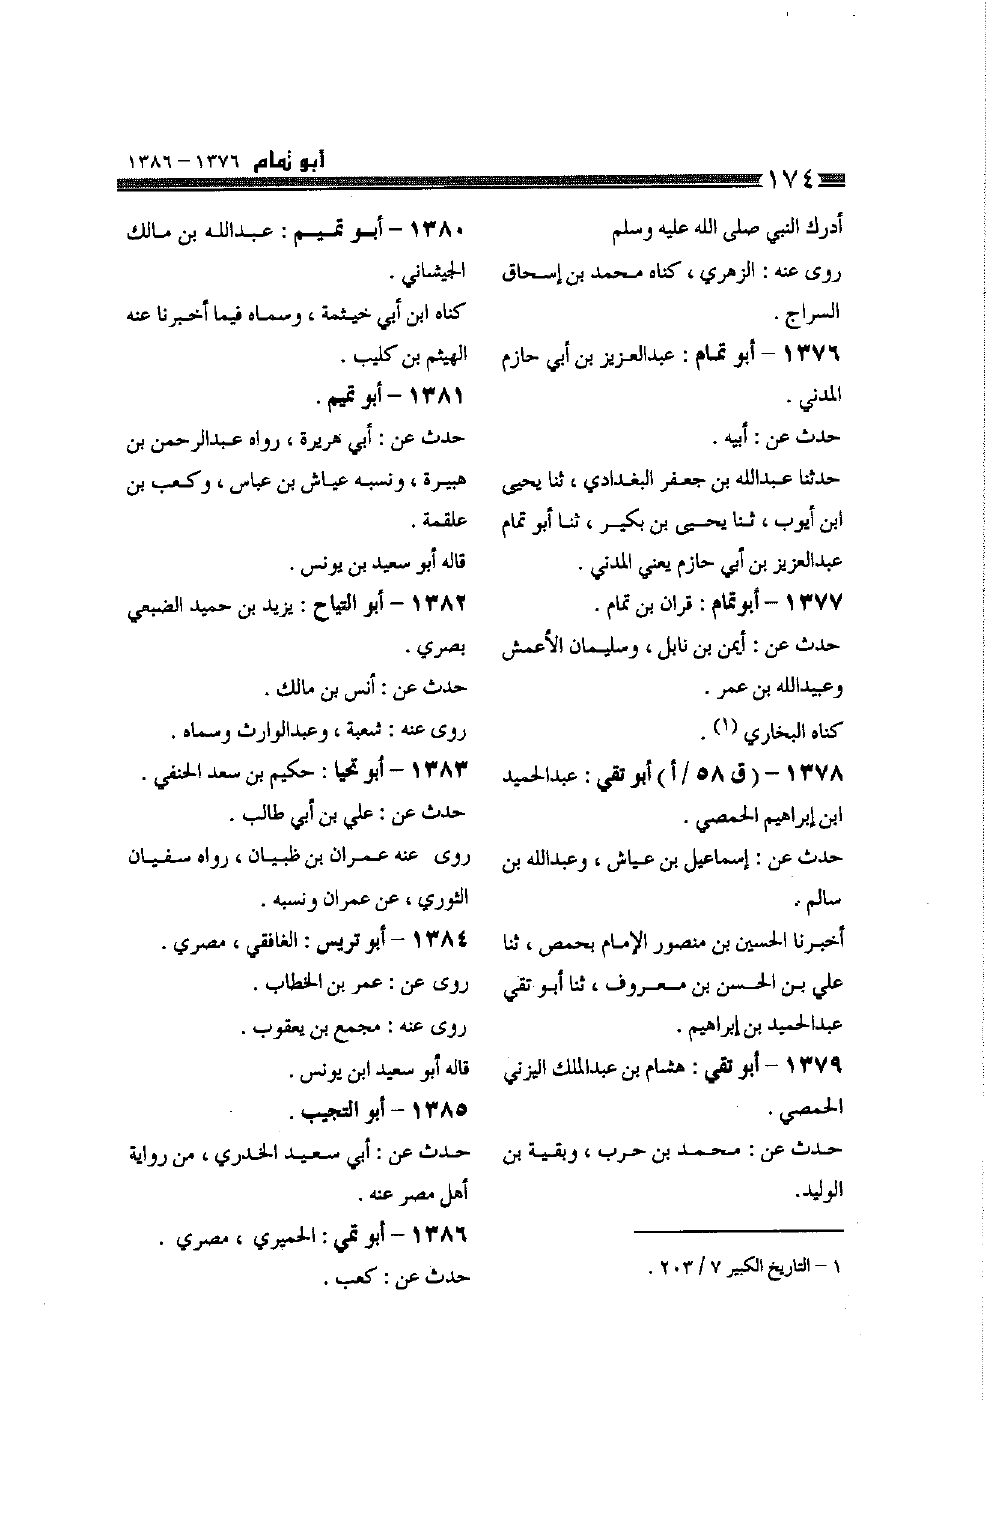 أبو تمام ١٣٧٦ – ١٣٨٦
١٧٤
أدرك النبي صلى الله عليه وسلم
روى عنه : الزهري ، كناه محمد بن إسحاق
السراج .
١٣٧٦ – أبو تمام : عبدالعزيز بن أبي حازم
المدني .
حدث عن : أبيه .
حدثنا عبدالله بن جعفر البغدادي ، ثنا يحيى
ابن أيوب ، ثنا يحيى بن بكير ، ثنا أبو تمام
عبدالعزيز بن أبي حازم يعني المدني .
١٣٧٧ – أبوتمام : قران بن تمام .
حدث عن : أيمن بن نابل ، وسليمان الأعمش
وعبيدالله بن عمر .
كناه البخاري (١) .
١٣٧٨ – ( ق ٥٨ / أ ) أبو تقي : عبدالحميد
ابن إبراهيم الحمصي .
حدث عن : إسماعيل بن عياش ، وعبدالله بن
سالم .
أخبرنا الحسين بن منصور الإمام بحمص ، ثنا
علي بن الحسن بن معروف ، ثنا أبو تقي
عبدالحميد بن إبراهيم .
١٣٧٩ – أبو تقي : هشام بن عبدالملك اليزني
الحمصي .
حدث عن : محمد بن حرب ، وبقية بن
الوليد.
١ – التاريخ الكبير ٧ / ٢٠٣ .
١٣٨٠ – أبو تميم : عبدالله بن مالك
الجيشاني .
كناه ابن أبي خيثمة ، وسماه فيما أخبرنا عنه
الهيثم بن كليب .
١٣٨١ – أبو تميم .
حدث عن : أبي هريرة ، رواه عبدالرحمن بن
هبيرة ، ونسبه عياش بن عباس ، وكعب بن
علقمة .
قاله أبو سعيد بن يونس .
١٣٨٢ – أبو التياح : يزيد بن حميد الضبعي
بصري .
حدث عن : أنس بن مالك .
روى عنه : شعبة ، وعبدالوارث وسماه .
١٣٨٣ – أبو تحيا : حكيم بن سعد الحنفي .
حدث عن : علي بن أبي طالب .
روى عنه عمران بن ظبيان ، رواه سفيان
الثوري ، عن عمران ونسبه .
١٣٨٤ – أبو تريس : الغافقي ، مصري .
روى عن : عمر بن الخطاب .
روى عنه : مجمع بن يعقوب .
قاله أبو سعيد ابن يونس .
١٣٨٥ – أبو التجيب .
حدث عن : أبي سعيد الخدري ، من رواية
أهل مصر عنه .
١٣٨٦ – أبو تمي : الحميري ، مصري .
حدث عن : كعب .